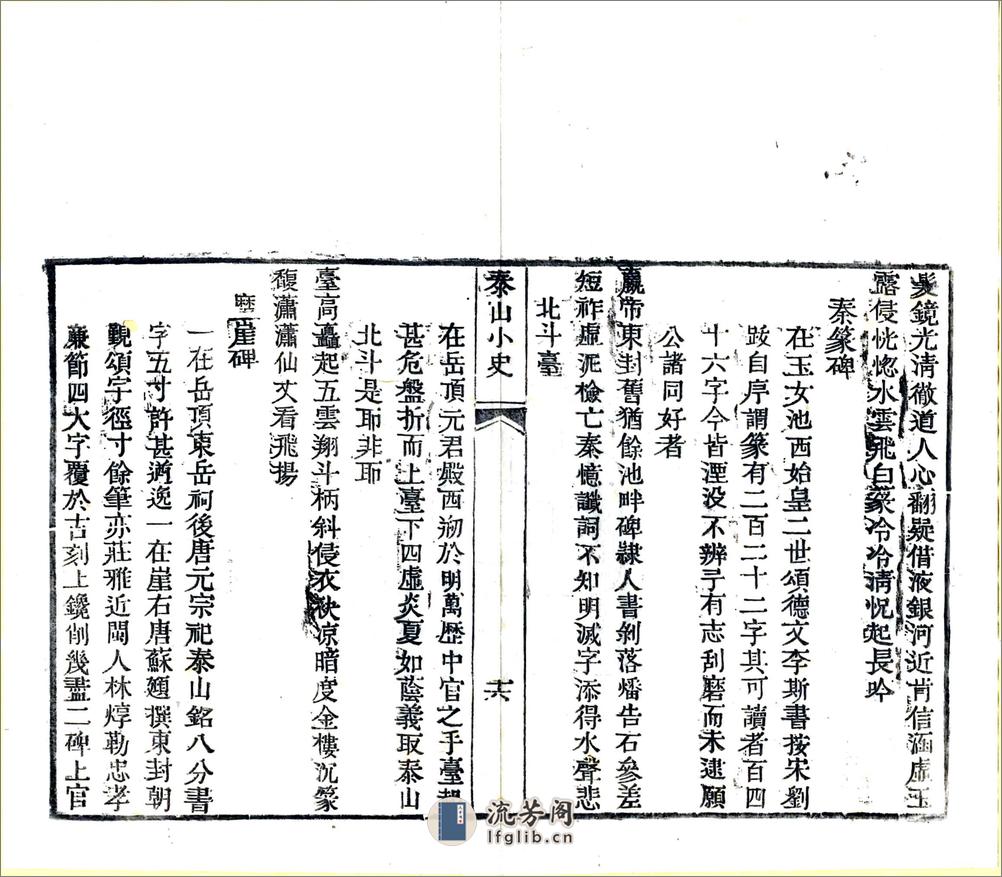 髮鏡光清徹道人心翻疑借液銀河近肯信涵虛玉
露侵恍惚水雲飛白篆冷冷淸怳起長吟
秦篆碑
在玉女池西始皇二世頌德文李斯書按宋劉
跂自序謂篆有二百二十二字其可讀者百四
十六字今皆湮没不辨予有志刮磨而未逮願
公諸同好者
嬴帝東封舊猶餘池畔碑隷人書剝落燔告石參差
短祚虛泥檢亡秦憶讖詞不知明滅字添得水聲悲
北斗臺
泰山小史
十六
在岳頂元君殿西剏於明萬歷中官之手臺
甚危盤折而上臺下四虛炎夏如蔭義取泰山
北斗是耶非耶
臺高矗起五雲翔斗柄斜侵衣袂凉暗度金樓沉篆
馥瀟瀟仙丈看飛揚
磨崖碑
一在岳頂東岳祠後唐元宗祀泰山銘八分書
字五寸許甚遒逸一在崖右唐蘇頲撰東封朝
覲頌字徑寸餘筆亦莊雅近閩人林焞勒忠孝
廉節四大字覆於古刻上鑱削幾盡二碑上官
流芳阁
lfglib.cn